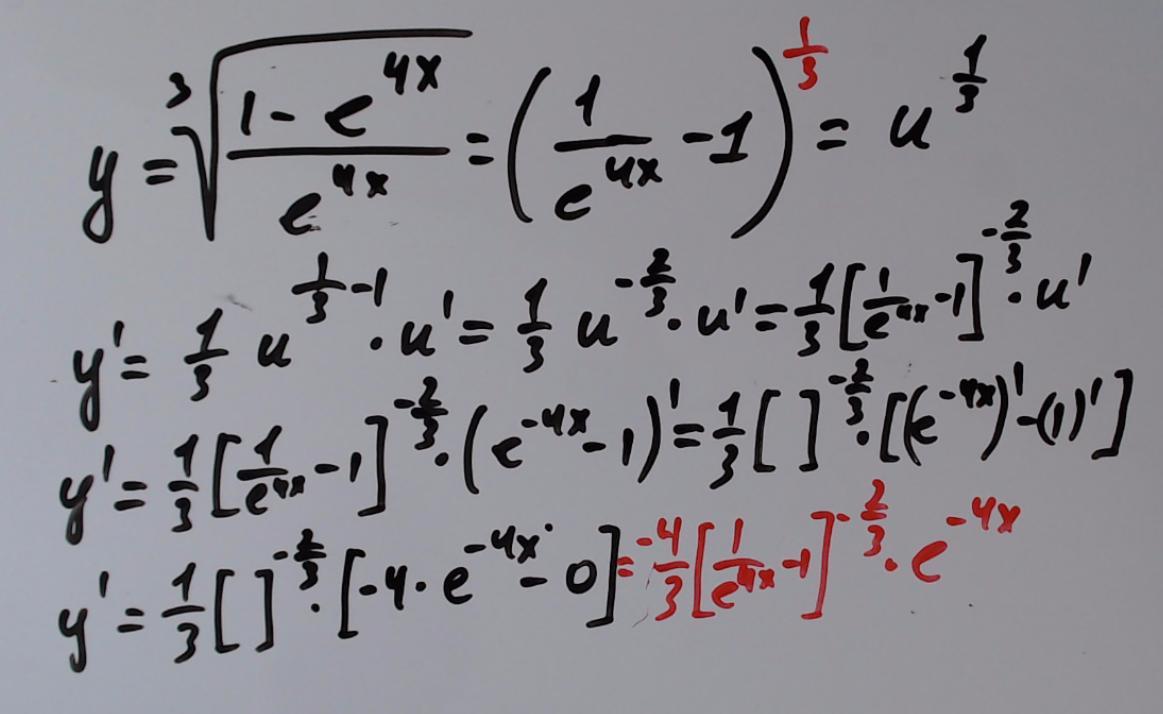 y = ∛((1 - e^(4x))/(e^(4x))) = (1/(e^(4x)) - 1)^(1/3) = u^(1/3)
y' = 1/3 u^(1/3 - 1) · u' = 1/3 u^(-2/3) · u' = 1/3 [1/(e^(4x)) - 1]^(-2/3) · u'
y' = 1/3 [1/(e^(4x)) - 1]^(-2/3) · (e^(-4x) - 1)' = 1/3 [ ]^(-2/3) · [(e^(-4x))' - (1)']
y' = 1/3 [ ]^(-2/3) · [-4 · e^(-4x) - 0] = -4/3 [1/(e^(4x)) - 1]^(-2/3) · e^(-4x)